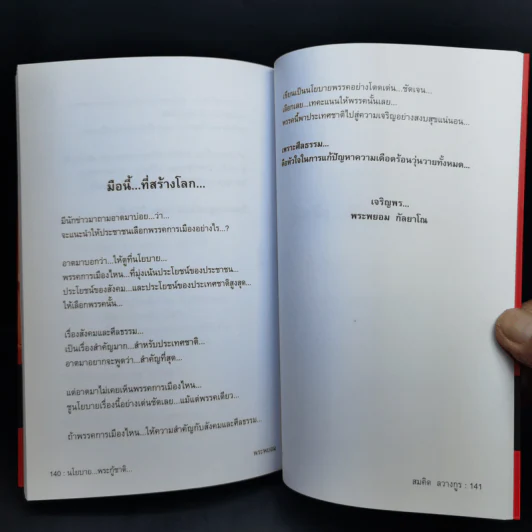 มือนี้...ที่สร้างโลก...
มีนักข่าวมาถามอาตมาบ่อย...ว่า...
จะแนะนำให้ประชาชนเลือกพรรคการเมืองอย่างไร...?
อาตมาบอกว่า...ให้ดูที่นโยบาย...
พรรคการเมืองไหน...ที่มุ่งเน้นประโยชน์ของประชาชน...
ประโยชน์ของสังคม...และประโยชน์ของประเทศชาติสูงสุด...
ให้เลือกพรรคนั้น...
เรื่องสังคมและศีลธรรม...
เป็นเรื่องสำคัญมาก...สำหรับประเทศชาติ...
อาตมาอยากจะพูดว่า...สำคัญที่สุด...
แต่อาตมาไม่เคยเห็นพรรคการเมืองไหน...
ชูนโยบายเรื่องนี้อย่างเด่นชัดเลย...แม้แต่พรรคเดียว...
ถ้าพรรคการเมืองไหน...ให้ความสำคัญกับสังคมและศีลธรรม...
พระพยอม
140 : นโยบาย...พระกู้ชาติ...
เขียนเป็นนโยบายพรรคอย่างโดดเด่น...ชัดเจน...
เลือกเลย...เทคะแนนให้พรรคนั้นเลย...
พรรคนี้พาประเทศชาติไปสู่ความเจริญอย่างสงบสุขแน่นอน...
เพราะศีลธรรม...
คือหัวใจในการแก้ปัญหาความเดือดร้อนวุ่นวายทั้งหมด...
เจริญพร...
พระพยอม กัลยาโณ
สมคิด ลวางกูร : 141